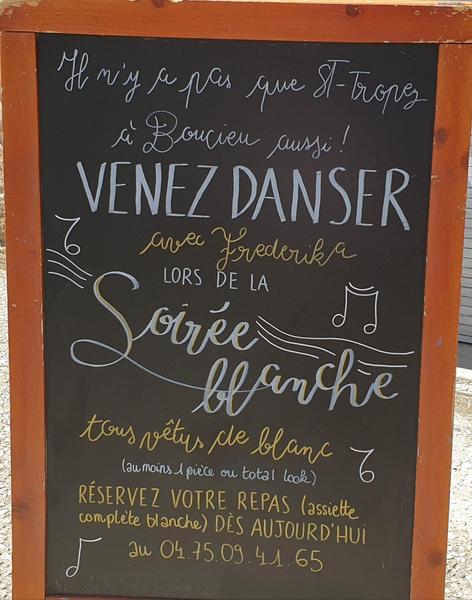 Il n'y a pas que ST-Tropez
à Boucieu aussi !
VENEZ DANSER
avec Frederika
LORS DE LA
Soirée
blanche
tous vêtus de blanc
(au moins 1 pièce ou total look)
RÉSERVEZ VOTRE REPAS (assiette
complète blanche) DÈS AUJOURD'HUI
au 04.75.09.41.65